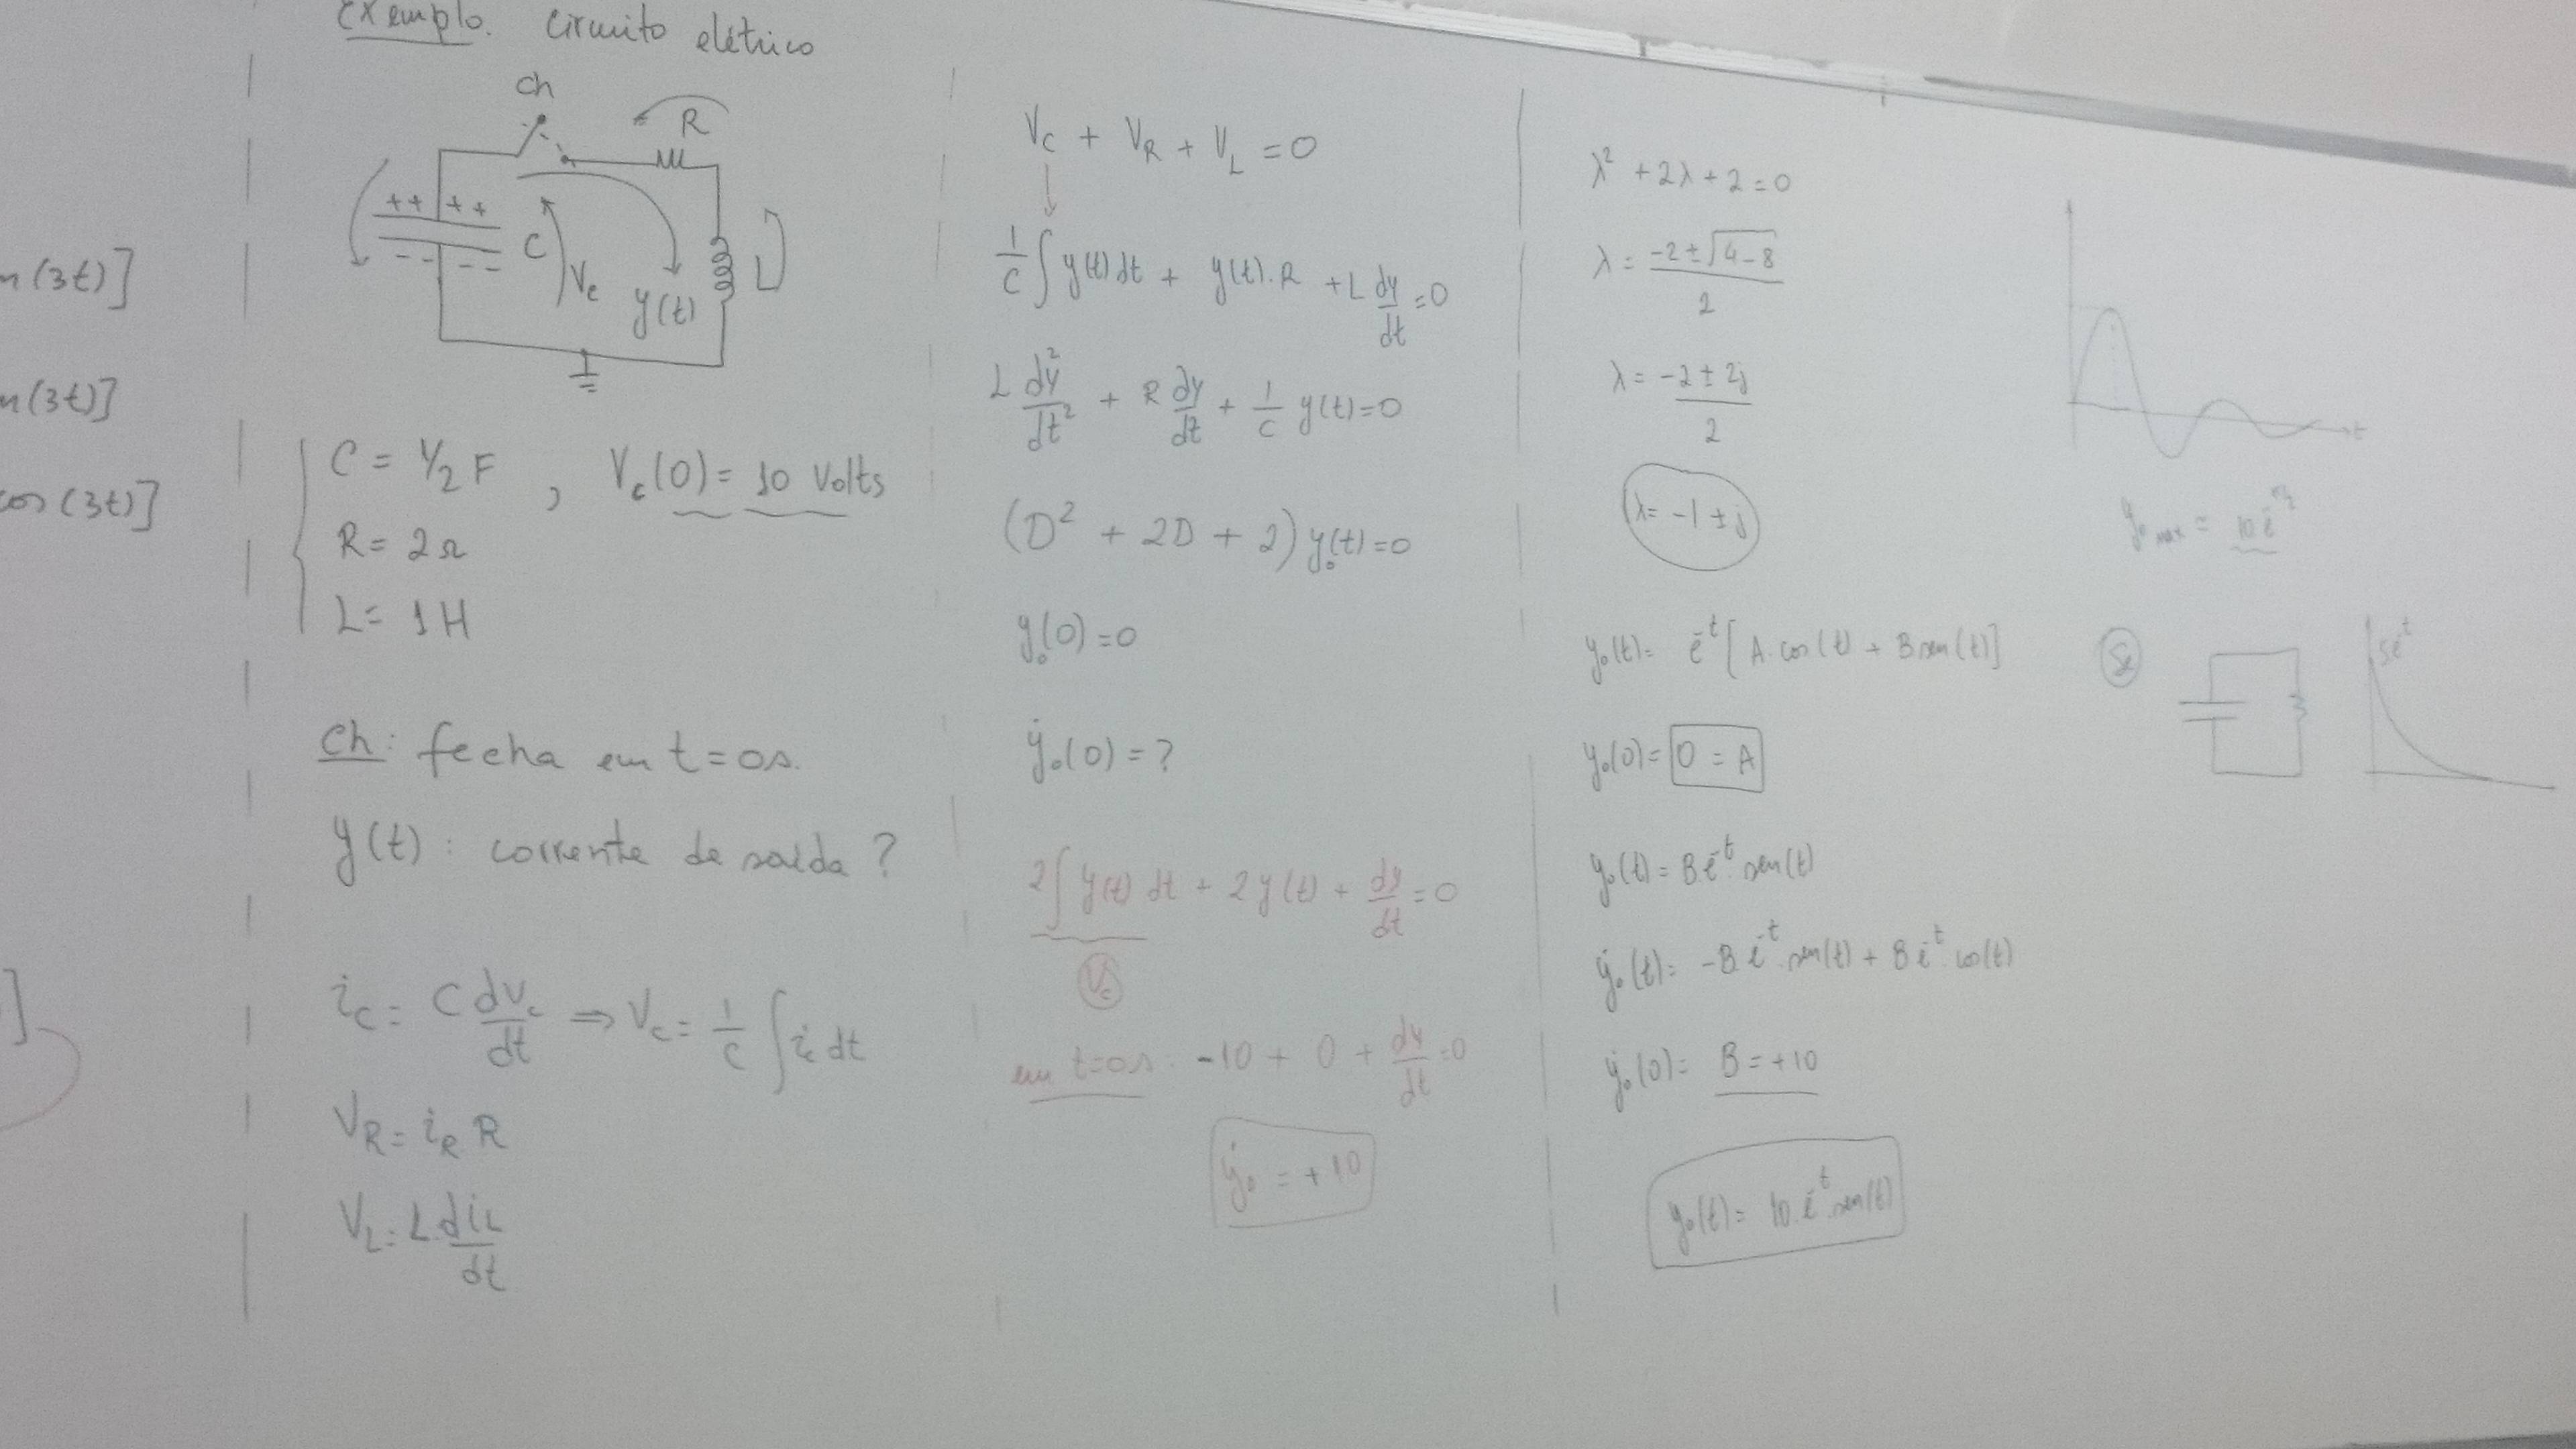 n(3t)]
n(3t)]
cos(3t)]
]
Exemplo. Circuito elétrico
Ch
R
++ ++
-- --
C
Vc
y(t)
L
C = 1/2 F , Vc(0) = 10 Volts
R = 2Ω
L = 1H
Ch: fecha em t=0s.
y(t): corrente de saída?
i_C = C dVc/dt ⇒ Vc = 1/C ∫ i_c dt
V_R = i_R R
V_L = L. di_L/dt
V_C + V_R + V_L = 0
1/C ∫ y(t) dt + y(t).R + L dy/dt = 0
L d²y/dt² + R dy/dt + 1/C y(t) = 0
(D² + 2D + 2) y₀(t) = 0
y₀(0) = 0
ẏ₀(0) = ?
2∫ y(t) dt + 2y(t) + dy/dt = 0
Vc
em t=0s: -10 + 0 + dy/dt = 0
ẏ₀ = +10
λ² + 2λ + 2 = 0
λ = (-2 ± √(4-8))/2
λ = (-2 ± 2j)/2
λ = -1 ± j
y₀(t) = e^-t [A.cos(t) + B sen(t)]
y₀(0) = 0 = A
y₀(t) = B.e^-t sen(t)
ẏ₀(t) = -B.e^-t.sen(t) + B e^-t.cos(t)
ẏ₀(0) = B = +10
y₀(t) = 10.e^-t.sen(t)
t
y₀ max = 10 e^-π/2
Se
5e^-t